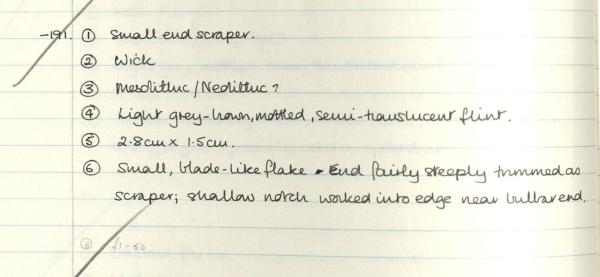 -191. ① Small end scraper.
② Wick
③ Mesolithic / Neolithic?
④ Light grey-brown, mottled, semi-translucent flint.
⑤ 2.8cm x 1.5cm.
⑥ Small, blade-like flake. End fairly steeply trimmed as
scraper; shallow notch worked into edge near bulbar end.
⑧ f1-50